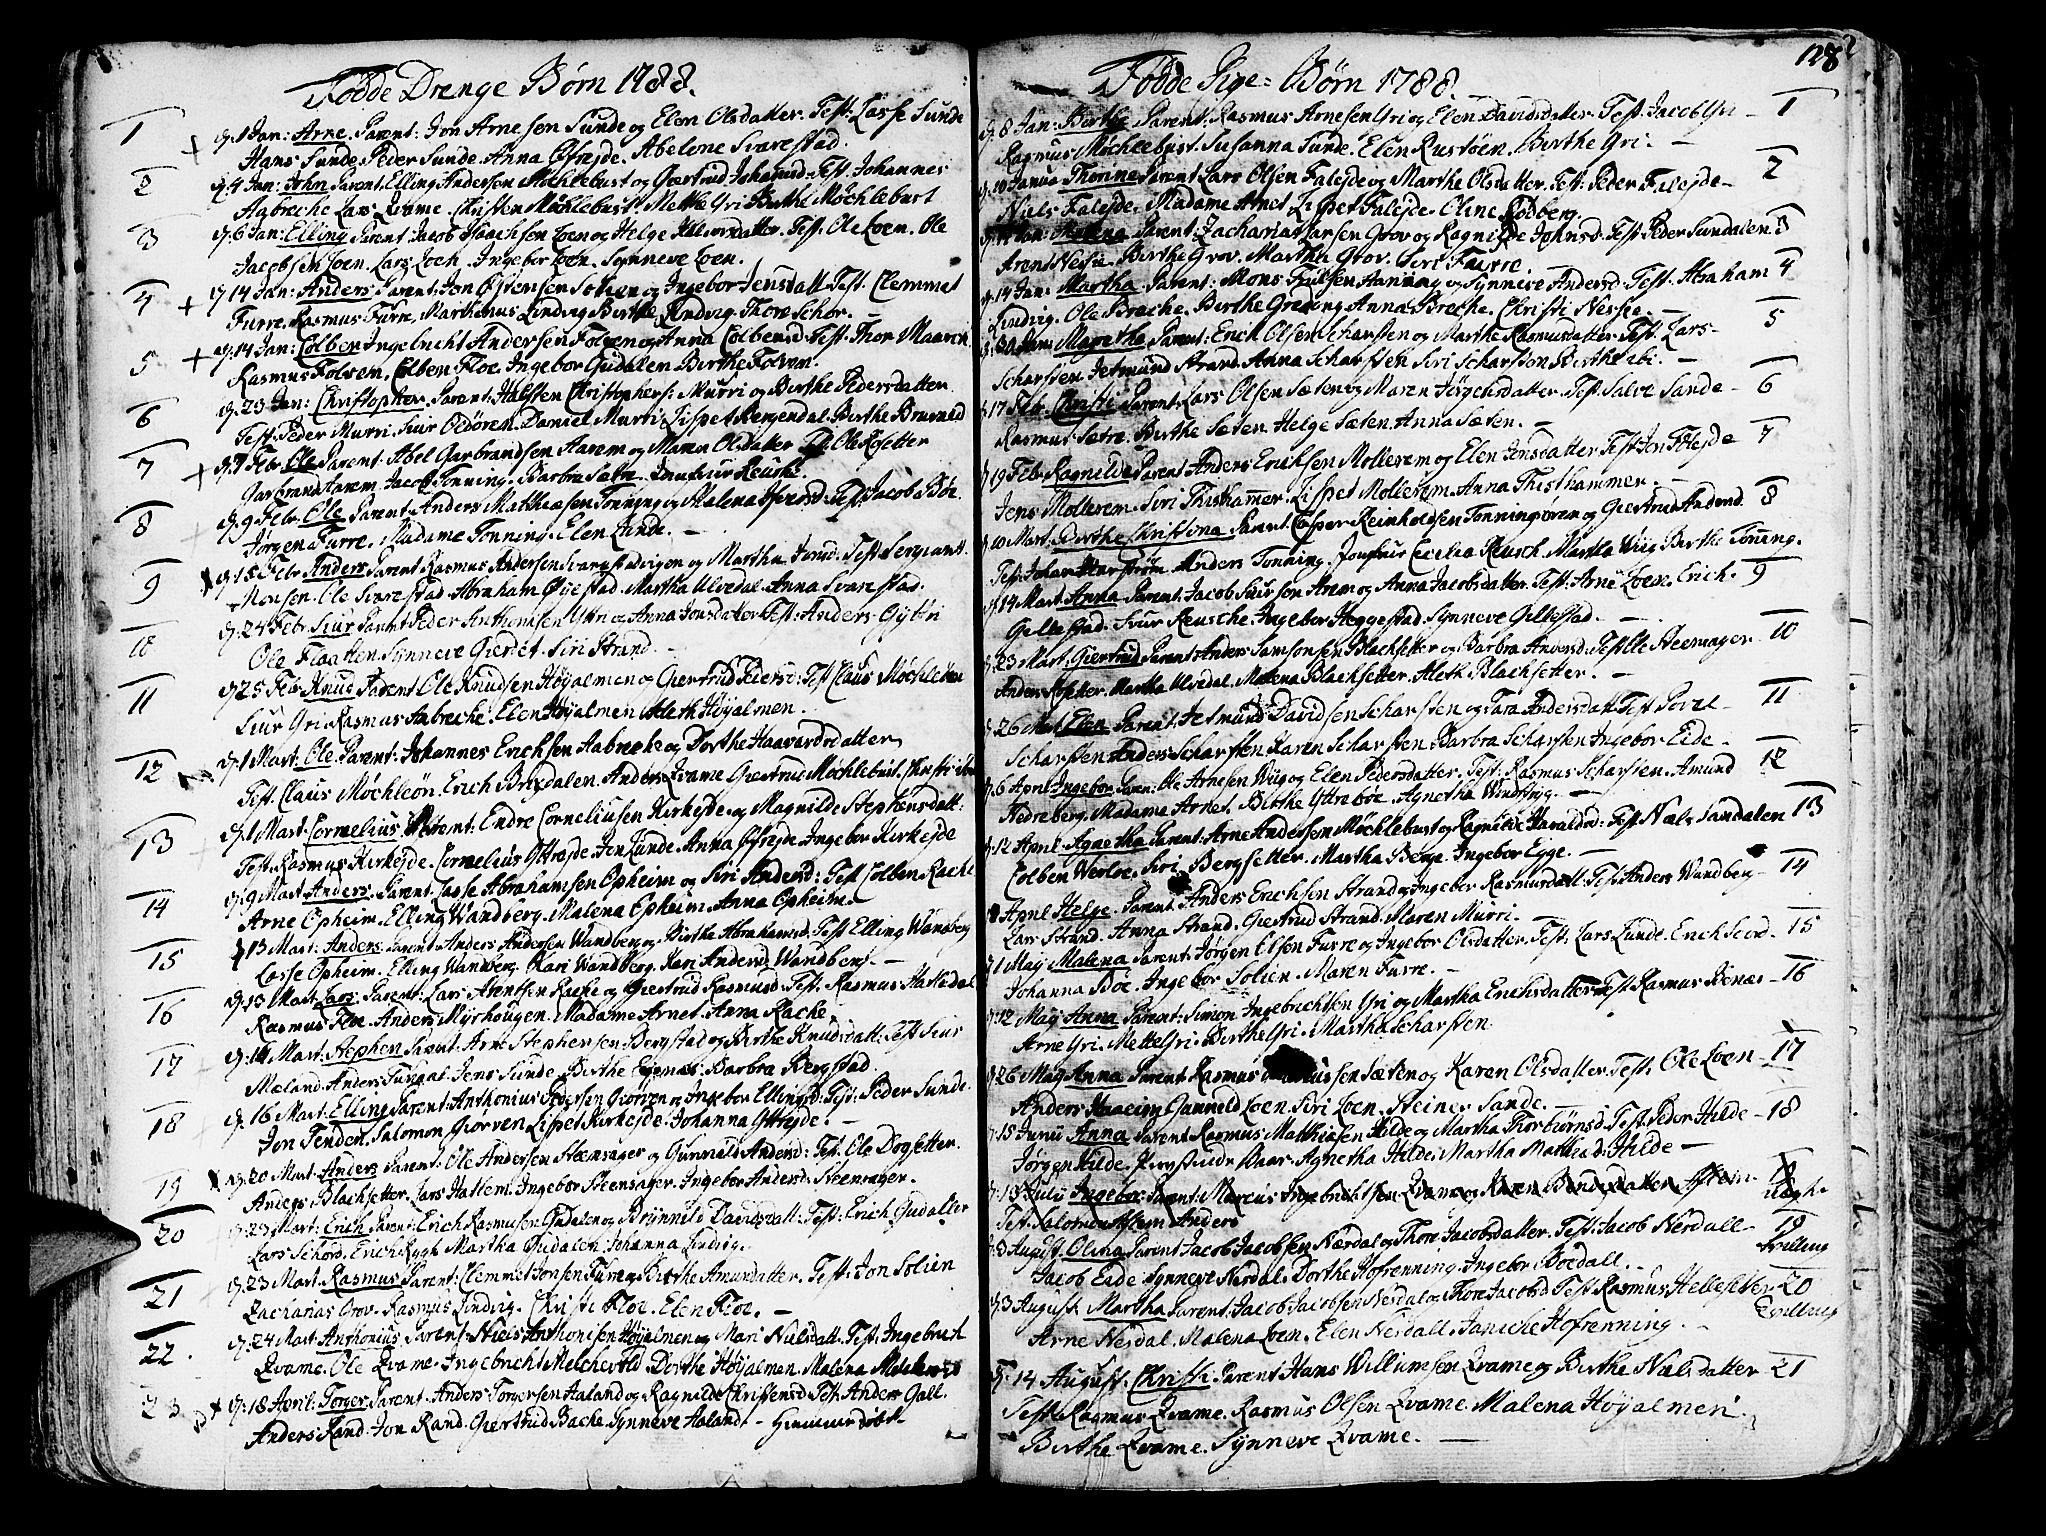 Fødde Drenge Børn 1788.
1 d. 1 Jan: Arne. Parent: Jon Arnesen Sunde og Elen Olsdatter. Test: Lasse Sunde
Hans Sunde. Peder Sunde. Anna Øfrejde. Abelene Svarestad.
2 d. 4 Jan: John Parent. Elling Andersen Möchlebust og Giertrud Johansd. Test. Johannes
Aabreche Lars Qvame. Christen Möchlebust. Mette Gri Birthe Möchlebust
3 d. 6 Jan: Elling Parent: Jacob Isaachsen Loen og Helge Halvorsdatter. Test. Ole Loen. Ole
Jacobsen Loen. Lars Loen. Ingebor Loen. Synneve Loen.
4 + 14 Jan: Anders Parent: Jon Østensen Solien og Ingebor Jensdatt. Test. Clemmet
Furre. Rasmus Furre, Marthinus Lindvig Birthe Lindvig. Thore Schor.
5 + d. 14 Jan: Colben Ingebricht Andersen Folven og Anna Colbensd. Test. Thor Maaren
Rasmus Folven. Colben Floe. Ingebor Gudalen Birthe Folven.
6 d. 23 Jan: Christopher. Parent: Halsten Christophers: Murri og Birthe Pedersdatter
Test. Peder Murri. Siur Oldören. Daniel Murri. Lispet Bergendal. Birthe Bruevold
7 + d. 7 Febr. Ole Parent. Abel Garbrandsen Aarem og Maren Olsdatter T. Ole Rosetter
Garbrand Aarem. Jacob Tonning. Barbra Sætre. Reusche
8 d. 9 Febr. Ole Parent. Anders Matthiasen Tonning og Malena Test. Jacob Böe
Jörgen Furre. Madame Tonning. Elen Lunde. —
9 d. 15 Febr Anders Parent Rasmus Andersen Svarestadvigen og Martha Test. Sergiant
Monsen. Ole Svarestad. Abraham Øyestad. Martha Ulvedal. Anna Svarestad.
10 d. 24 Febr. Siur Parent Peder Anthonisen Ytri og Anna Jonsdatter Test: Anders Gyttri
Ole Flaatten. Synneve Gierdet. Siri Strand. —
11 d. 25 Febr Knud Parent Ole Knudsen Höyalmen og Giertrud Test Claus Möchleöen
Siur Gri. Rasmus Aabreche. Elen Höyalmen Aleth Höyalmen.
12 d. 1 Mart. Ole. Parent: Johannes Erichsen Aabreche og Dorthe Haavardsdatter
Test. Claus Möchleöen. Erich Brixdalen. Anders Qvame Giertrud Möchlebust. Christi
13 d. 1 Mart. Cornelius Parent: Endre Corneliusen Kirkejde og Magnilde Stephensdatt:
Test. Rasmus Kirkejde. Cornelius Yttrejde. Jon Lunde. Anna Øfrejde. Ingebor Kirkejde
14 d. 9 Mart. Anders. Parent: Lasse Abrahamsen Opheim og Siri Andersd: Test. Colben Rache
Arne Opheim. Elling Wandberg. Malena Opheim. Anna Opheim.
15 13 Mart: Anders: Parent. Anders Andersen Wandberg og Birthe Abrahamsd. Test. Elling Wandberg
Lasse Opheim. Elling Wandberg. Kari Wandberg. Kari Andersd. Wandberg. —
16 d. 13 Mart. Lars: Parent: Lars Arentsen Rache og Giertrud Rasmusd. Test. Rasmus Hattedal
Rasmus Floe. Anders Myrhougen. Madame Arnet. Anna Rache.
17 d. 14 Mart: Stephen Parent: Arne Stephensen Bergstad og Birthe Knudsdatt: Test Siur
Mæland. Anders Jens Sunde. Birthe Egenæs. Barbra Bergstad.
18 d. 16 Mart. Elling Parent. Anthonius Pedersen Giörven og Ingebor Ellingsd: Test: Peder Sunde
Jon Tenden. Salomon Giörven. Lispet Kirkejde. Johanna Yttrejde. —
19 d. 20 Mart. Anders Parent: Ole Andersen Steensager og Gunnild Andersd: Test. Ole Dogsetter.
Anders Blachsetter. Lars Hattem. Ingebor Steensager. Ingebor Andersd. Steensager.
20 d. 23 Mart: Erich Parent: Erich Rasmusen Gudalen og Brynnild Davidsdatt: Test: Erich Gudalen
Lars Schord. Erich Rygh Martha Gudalen. Johanna Lindvig.
21 d. 23 Mart. Rasmus Parent: Clemmet Jonsen Furre og Birthe Amundatter. Test: Jon Solien
Zacharias Grov. Rasmus Lindvig. Christi Floe. Elen Floe. —
22. d. 24 Mart. Anthonius Parent: Niels Anthonisen Höyalmen og Mari Nielsdatt. Test. Ingebricht
Qvame. Ole Qvame. Ingebricht Melchevold. Dorthe Höyalmen. Malena
23. + d. 18 April: Torger Parent. Anders Torgersen Aaland og Ragnilde Christensd. Test. Anders Gall
Anders Rand. Jon Rand. Giertrud Bache. Synneve Aaland. — Hiemmedöbt

128
Fødde Pige=Børn 1788.
d. 8 Jan: Birthe Parent: Rasmus Arnesen Gri og Elen Davidsdatter. Test: Jacob Gri — 1
Rasmus Möchlebust. Susanna Sunde. Elen Rustöen. Birthe Gri. —
d. 10 Janua Thorine Parent Lars Olsen Faleide og Marthe Olsdatter. Test: Peder Faleide — 2
Niels Faleide. Madame Arnet. Lispet Faleide. Oline Rödberg.
Jan: Parent: Zacharias Larsen Grov og Ragnilde Johnsd. Test: Peder Sundalen 3
Arent Birthe Grov. Martha Grov. Siri Furre.
d. 14 Jan: Martha Parent: Mons og Synneve Andersd. Test. Abraham 4
Lindvig. Ole Breche. Birthe Greding Anna Breche. Christi Nessee. —
Jan: Magretha Parent: Erich Olsen Scharsten og Marthe Rasmusdatter. Test. Lars — 5
Scharsten Jetmund Strand. Anna Scharsten Siri Scharsten Birthe —
17 Febr. Christi Parent. Lars Olsen Sæten og Maren Jörgensdatter. Test. Salve Sande — 6
Rasmus Sætre. Birthe Sæten. Helge Sæten. Anna Sæten. —
19 Febr. Ragnilde Parent Anders Erichsen Mollerem og Elen Jonsdatter Test. Jon Föleide 7
Jens Mollerem. Siri Thisthammer. Lispet Mollerem. Anna Thisthammer. —
d. 10 Mart. Birthe Christina Parent. Casper Reinholdsen Tonningören og Giertrud Andersd. 8
Test: Johan Anders Tonning. Jomfrue Cecelia Reusch. Martha Wiig Birthe Tonning.
14 Mart. Anna Parent. Jacob Siursen Arem og Anna Jacobsdatter. Test: Arne Loen. Erich. 9
Gillestad. Siur Reusche. Ingebor Heggestad. Synneve Gillestad. —
23 Mart. Giertrud Parent. Anders Samsonsen Blachsetter og Barbra Andersd. Test. Ole Steensager 10
Anders Rosetter. Martha Ulvedal. Malena Blachsetter. Aleth Blachsetter. —
26 Mart Elen Parent: Jetmund Davidsen Scharsten og Sara Andersdatt. Test. Povel — 11
Scharsten Anders Scharsten Karen Scharsten Barbra Scharsten Ingebor Eide —
d. 6 April Ingebor Paren: Ole Arnesen Wiig og Elen Pedersdatter. Test: Rasmus Scharsten. Amund 12
Nedreberg. Madame Arnet. Birthe Yttreböe. Agnetha —
d. 12 April Agnetha Parent: Arne Andersen Möchlebust og Ragnilde Haraldsd: Test. Niels Sandalen 13
Colben Werloe. Siri Bergsetter. Martha Berge. Ingebor Egge. —
April Helge. Parent Anders Erichsen Strand og Ingebor Rasmusdatt: Test: Anders Wandberg — 14
Lars Strand. Anna Strand. Giertrud Strand. Maren Murri. —
1 May Malena Parent: Jörgen Olsen Furre og Ingebor Olsdatter. Test. Lars Lunde. Erich — 15
Johanna Böe. Ingebor Solien. Maren Furre. —
d. 12 May Anna Parent: Simon Ingebrichtsen Gri og Martha Erichsdatter Test. Rasmus — 16
Arne Gri. Mette Gri. Birthe Gri. Martha Scharsten
26 May Anna Parent Rasmus Sæten og Karen Olsdatter. Test. Ole Loen — 17
Anders Haaeim. Gunnild Loen. Siri Loen. Steiner Sande. —
15 Junii Anna Parent Rasmus Matthiasen Hilde og Martha Thorbörnsd. Test. Peder Hilde — 18
Jörgen Hilde. Agnetha Hilde. Martha Matthiasd: Hilde —
13 Julii Ingebor Parent: Marcus Ingebrichtsen Qvame og Karen Bendixdatter Astem 19
Test. Salomon Astem Anders
3 August. Olina Parent Jacob Jacobsen Nerdal og Thore Jacobsdatter. Test. Jacob Nerdall — 19 tvilling
Jacob Eide. Synneve Nerdal. Dorthe Hofrenning. Ingebor Böedall. —
3 August. Martha Parent: Jacob Jacobsen Nerdal og Thore Jacobsd. Test. Rasmus Hellesetter 20 Tvilling
Arne Nerdal. Malena Loen. Elen Nerdall. Janiche Hofrenning. —
14 August. Christi Parent Hans Willumsen Qvame og Birthe Nielsdatter 21
Test. Rasmus Qvame. Rasmus Olsen Qvame. Malena Höyalmen.
Birthe Qvame. Synneve Qvame. —